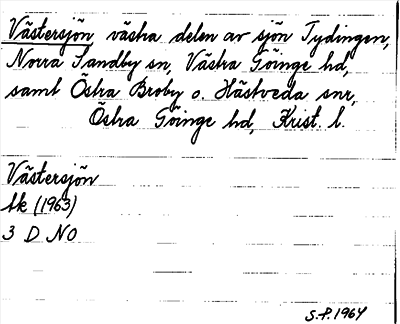 Västersjön, västra delen av sjön Tydingen,
Norra Sandby sn, Västra Göinge hd,
samt Östra Broby o. Hästveda snr,
Östra Göinge hd, Krist. l.
Västersjön
tk (1963)
3 D NO
S.P. 1964